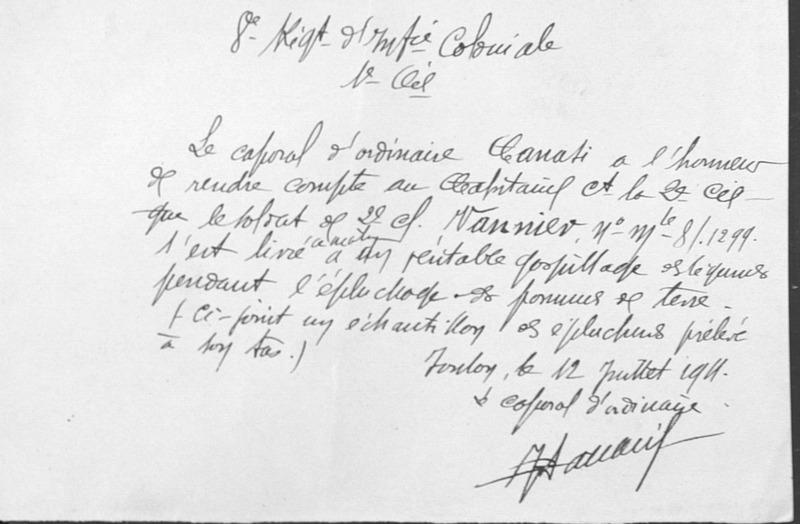 8e Régt d'Infie Coloniale
1e Cie
Le caporal d'ordinaire Canasi a l'honneur
de rendre compte au Capitaine Ct la 2e Cie
que le soldat de 2e cl. Vannier, no mle 8/.1299.
s'est livré ce matin à un véritable gaspillage de légumes
pendant l'épluchage de pommes de terre.
(Ci-joint un échantillon des épluchures prélevé
à son tas.)
Toulon, le 12 Juillet 1911.
Le caporal d'ordinaire